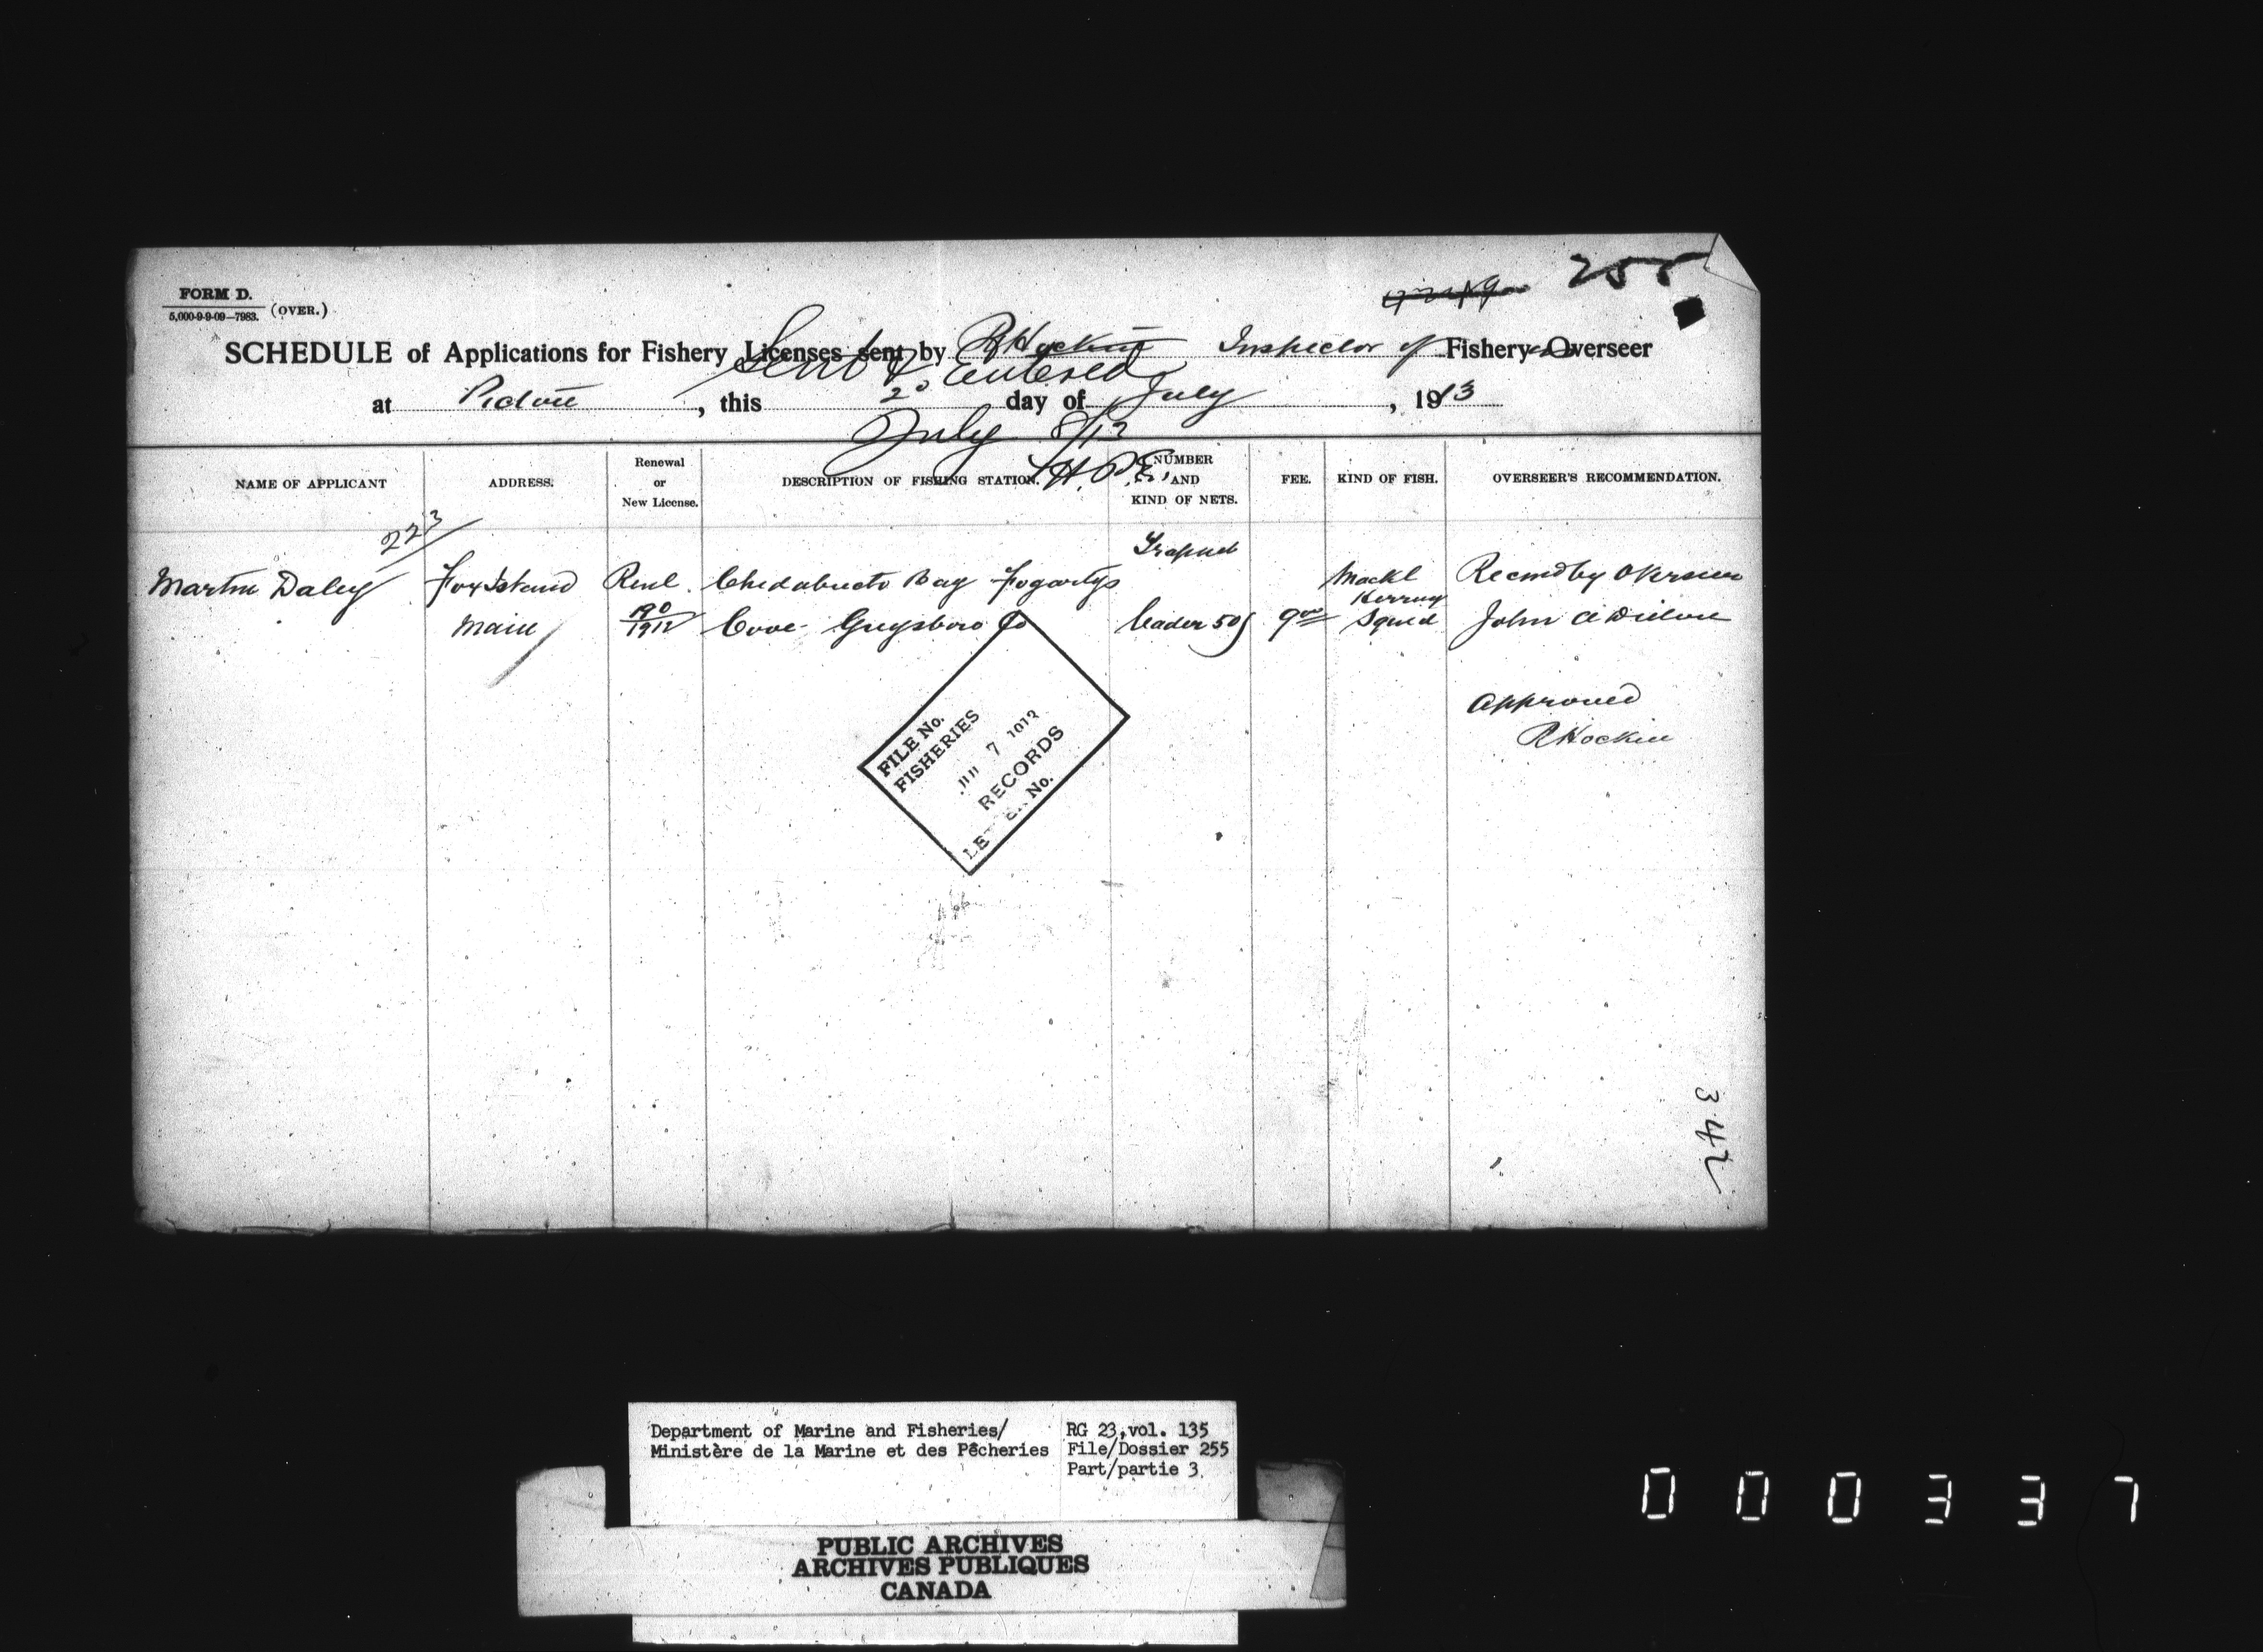 255
FORM D.
5,000-9-9-09—7983. (OVER.)
SCHEDULE of Applications for Fishery Licenses sent by R Hockin Inspector of Fishery Overseer
Sent & entered
at Pictou, this 2º day of July, 1913
July 8/13
H.P.E.
NAME OF APPLICANT ADDRESS. Renewal or New License. DESCRIPTION OF FISHING STATION. NUMBER AND KIND OF NETS. FEE. KIND OF FISH. OVERSEER'S RECOMMENDATION.
223
Trapnet
Martin Daley Fox Island Renl. Chedabucto Bay Fogartys Mackl Recmd by Overseer
Herring
Main 190/1912 Cove Guysboro Co leader 50 9.00 Squid John A Dillon
Approved
R Hockin
FILE No.
FISHERIES
7
RECORDS
No.
342
Department of Marine and Fisheries/ RG 23, vol. 135
Ministère de la Marine et des Pêcheries File/Dossier 255
Part/partie 3.
PUBLIC ARCHIVES
ARCHIVES PUBLIQUES
CANADA
000337